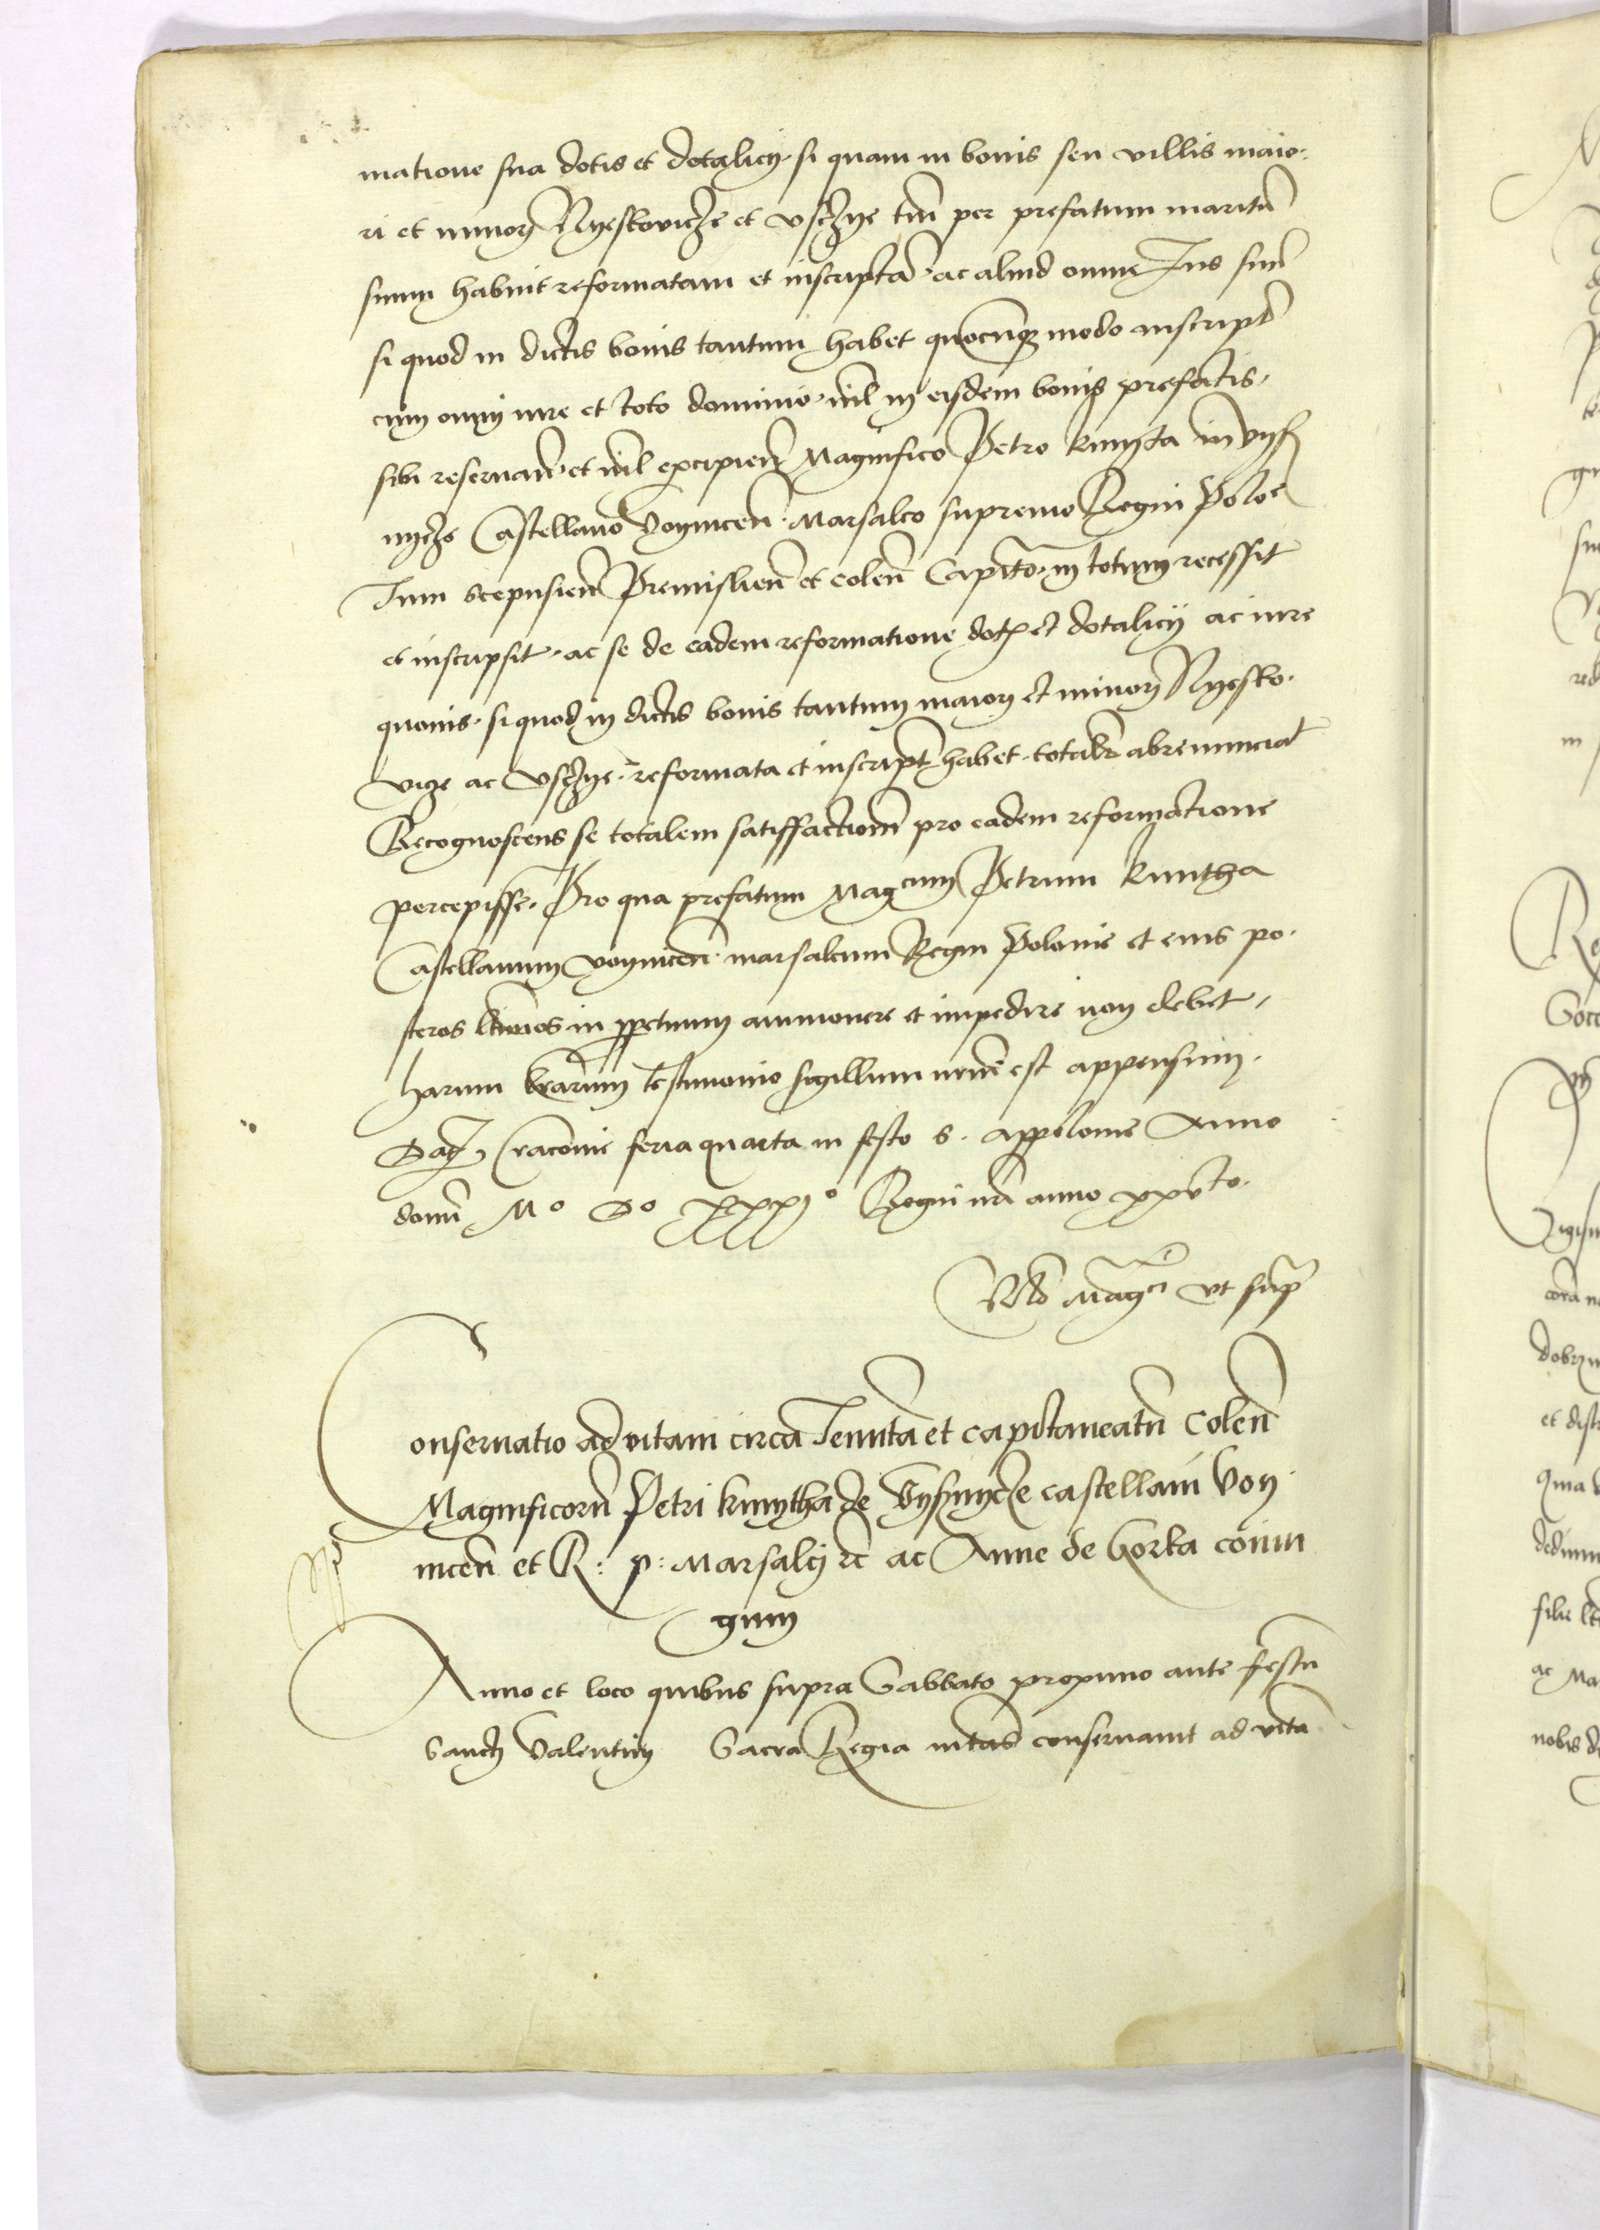 matione sua dotis et dotalicij, si quam in bonis seu villis maio-
ri et minorj Nyeskovicze et Usczye tm̄ per prefatum maritū
suum habuit reformatam et inscriptā, ac aliud omne Ius suū
si quod in dictis bonis tantum habet quocūq₃ modo inscriptū
cum omni iure et toto dominio, nil in eisdem bonis prefatis,
sibi reservañ. et nil excipieñ Magnifico Petro Kmytha in Vyss
nycze Castellano Voyniceñ. Marsalco supremo Regni Poloe
Tum Scepusieñ Premislieñ et Coleñ Capīto. in totum recessit
et inscripsit, ac se de eadem reformatione dotis et dotalicij ac iure
quovis, si quod in dictis bonis tantum maiorj et minorj Nyesko-
vicze ac Usczye, reformata et inscript̄ habet, totalr̄ abrenunciat
Recognoscens se totalem satisfactioñ pro eadem reformatione
percepisse. Pro qua prefatum Magcum Petrum Kmitha
Castellanum Voyniceñ. marsalcum Regni Polonie et eius po-
steros ltimos in ppetuum ammovere et impedire non debet,
harum lrarum testimonio sigillum nrūm est appensum.
Dat Cracovie feria quarta in festo S. Appolonie Anno
domī Mº Dº XXXjº Regni nrī anno xxvto.
Rlo Magci ut supr
Conservatio ad vitam circa Tenutā et capitaneatū Coleñ
Magnificorū Petri Kmytha de Vyssnycze castellani Voy
niceñ et R: p: Marsalcij rc ac Anne de Gorka coniu
gum
Anno et loco quibus supra Sabbato proximo ante festū
Sancti Valentini Sacra Regia mtas conservavit ad vitā